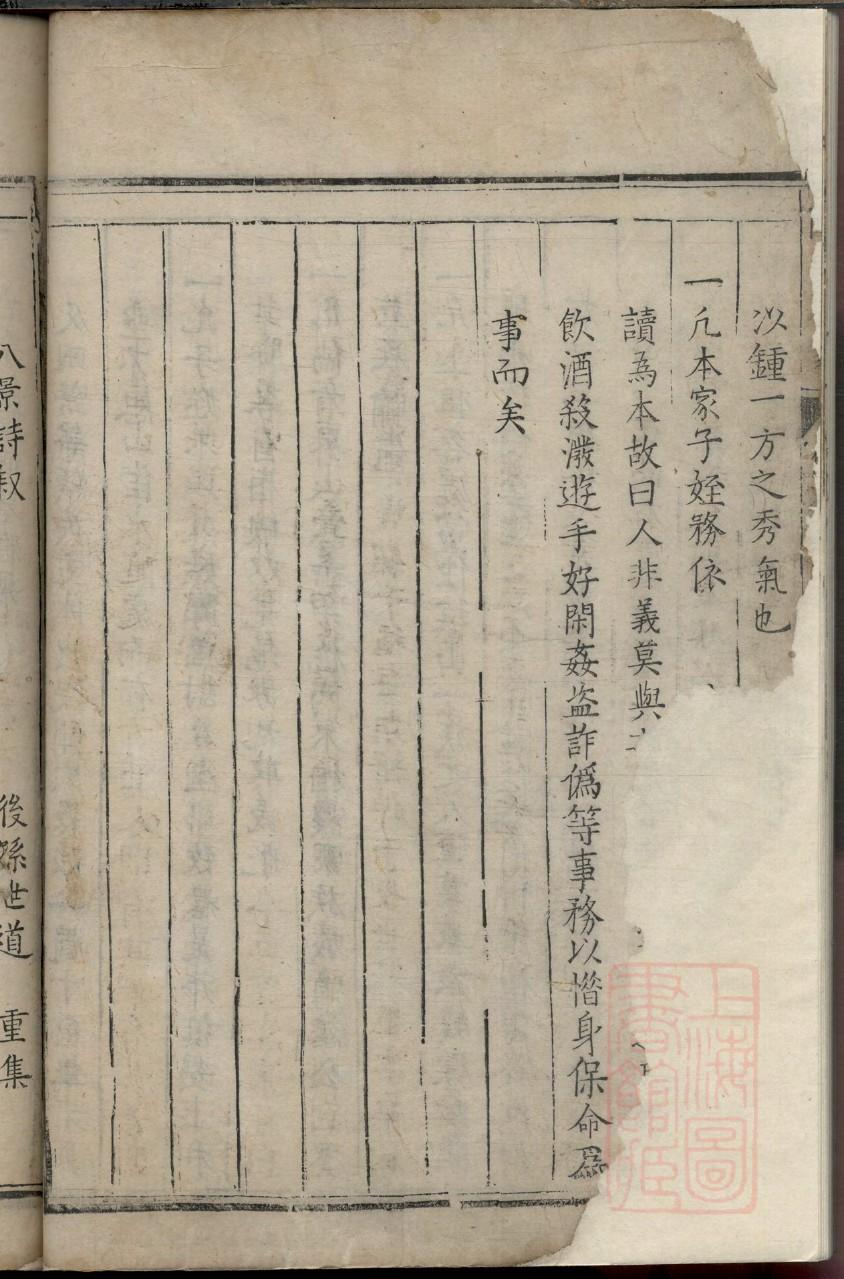 以鍾一方之秀氣也
一凢本家子姪務依
讀為本故曰人非義莫與
飲酒殺潑遊手好閑姦盗詐僞等事務以惜身保命爲
事而矣
八景詩叙
後孫世道 重集
上海圖
書館